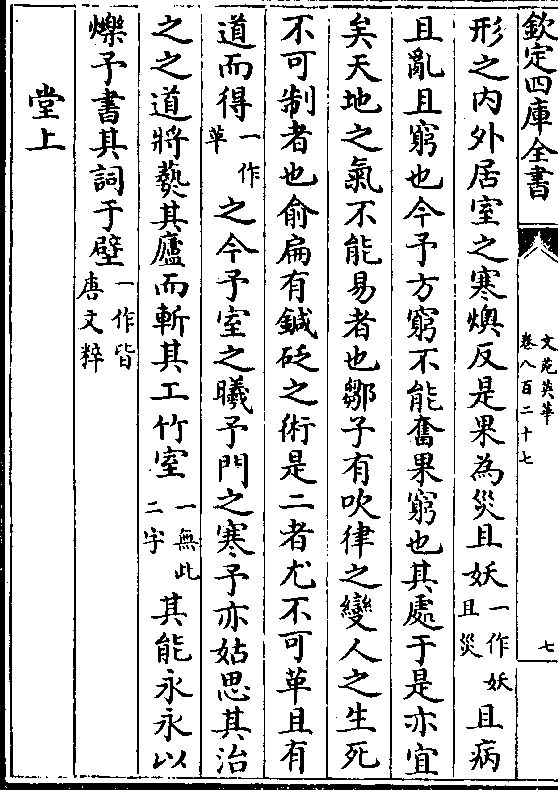 欽定四庫全書
文苑英華
卷八百二十七
七
形之内外居室之寒燠反是果為災且妖一作妖且災且病
且亂且窮也今予方窮不能奮果窮也其處于是亦宜
矣天地之氣不能易者也鄒子有吹律之變人之生死
不可制者也俞扁有鍼砭之術是二者尤不可革且有
道而得一作革之今予室之曦予門之寒予亦姑思其治
之之道將爇其廬而斬其工竹室一無此二字其能永永以
爍予書其詞于壁一作皆唐文粹
堂上